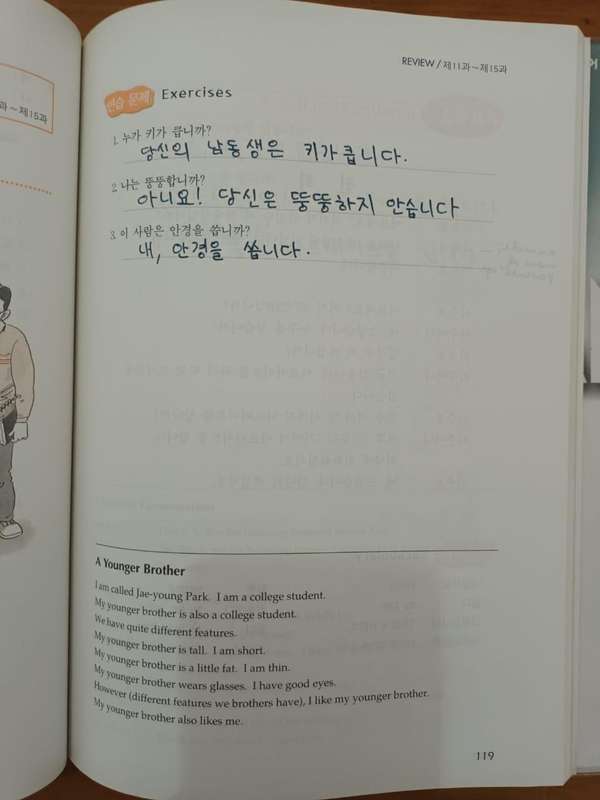 REVIEW / 제11과~제15과
과~제15과
연습 문제 Exercises
1. 누가 키가 큽니까?
당신의 남동생은 키가큽니다.
2. 나는 뚱뚱합니까?
아니요! 당신은 뚱뚱하지 안습니다
3. 이 사람은 안경을 씁니까?
내, 안경을 씁니다.
A Younger Brother
I am called Jae-young Park. I am a college student.
My younger brother is also a college student.
We have quite different features.
My younger brother is tall. I am short.
My younger brother is a little fat. I am thin.
My younger brother wears glasses. I have good eyes.
However (different features we brothers have), I like my younger brother.
My younger brother also likes me.
119